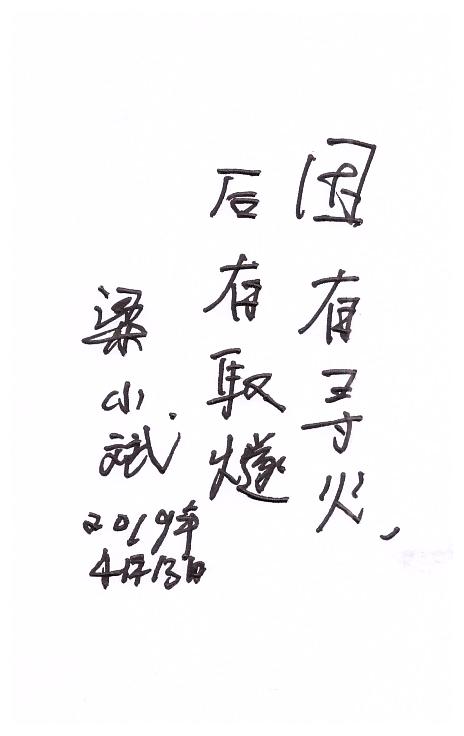 因有寻火，
后有取燧
梁小斌
2019年
4月13日